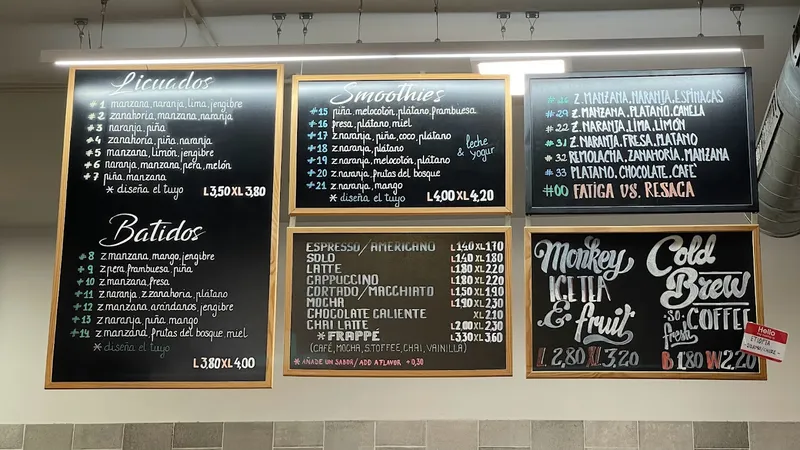 Licuados
#1 manzana, naranja, lima, jengibre
#2 zanahoria, manzana, naranja
#3 naranja, piña
#4 zanahoria, piña, naranja
#5 manzana, limón, jengibre
#6 naranja, manzana, pera, melón
#7 piña, manzana
* diseña el tuyo L3,50 XL3,80
Batidos
#8 z.manzana, mango, jengibre
#9 z.pera, frambuesa, piña
#10 z.manzana, fresa
#11 z.naranja, z.zanahoria, plátano
#12 z.manzana, arándanos, jengibre
#13 z.naranja, piña, mango
#14 z.manzana, frutas del bosque, miel
* diseña el tuyo
L3,80 XL4,00
Smoothies
#15 piña, melocotón, plátano, frambuesa
#16 fresa, plátano, miel
#17 z.naranja, piña, coco, plátano
#18 z.naranja, plátano
#19 z.naranja, melocotón, plátano
#20 z.naranja, frutas del bosque
#21 z.naranja, mango
& leche
yogur
* diseña el tuyo L4,00 XL4,20
Z.MANZANA, NARANJA, ESPINACAS
#29 Z.MANZANA, PLATANO, CANELA
#22 Z.NARANJA, LIMA, LIMÓN
#31 Z.NARANJA, FRESA, PLATANO
#32 REMOLACHA, ZANAHORIA, MANZANA
#33 PLATANO, CHOCOLATE, CAFE
#00 FATIGA VS. RESACA
ESPRESSO/AMERICANO L1,40 XL1,70
SOLO L1,40 XL1,80
LATTE L1,80 XL2,20
CAPPUCCINO L1,80 XL2,20
CORTADO/MACCHIATO L1,50 XL1,90
MOCHA L1,90 XL2,30
CHOCOLATE CALIENTE XL2,10
CHAI LATTE L2,00 XL2,30
* FRAPPÉ L3,30 XL3,60
(CAFÉ, MOCHA, S.TOFFEE, CHAI, VAINILLA)
* AÑADE UN SABOR/ADD A FLAVOR +0,30
Monkey
ICE TEA
& fruit
L 2,80 XL 3,20
Cold
Brew
SO
fresh COFFEE
B 1,80 W 2,20
Hello
ETIOPIA